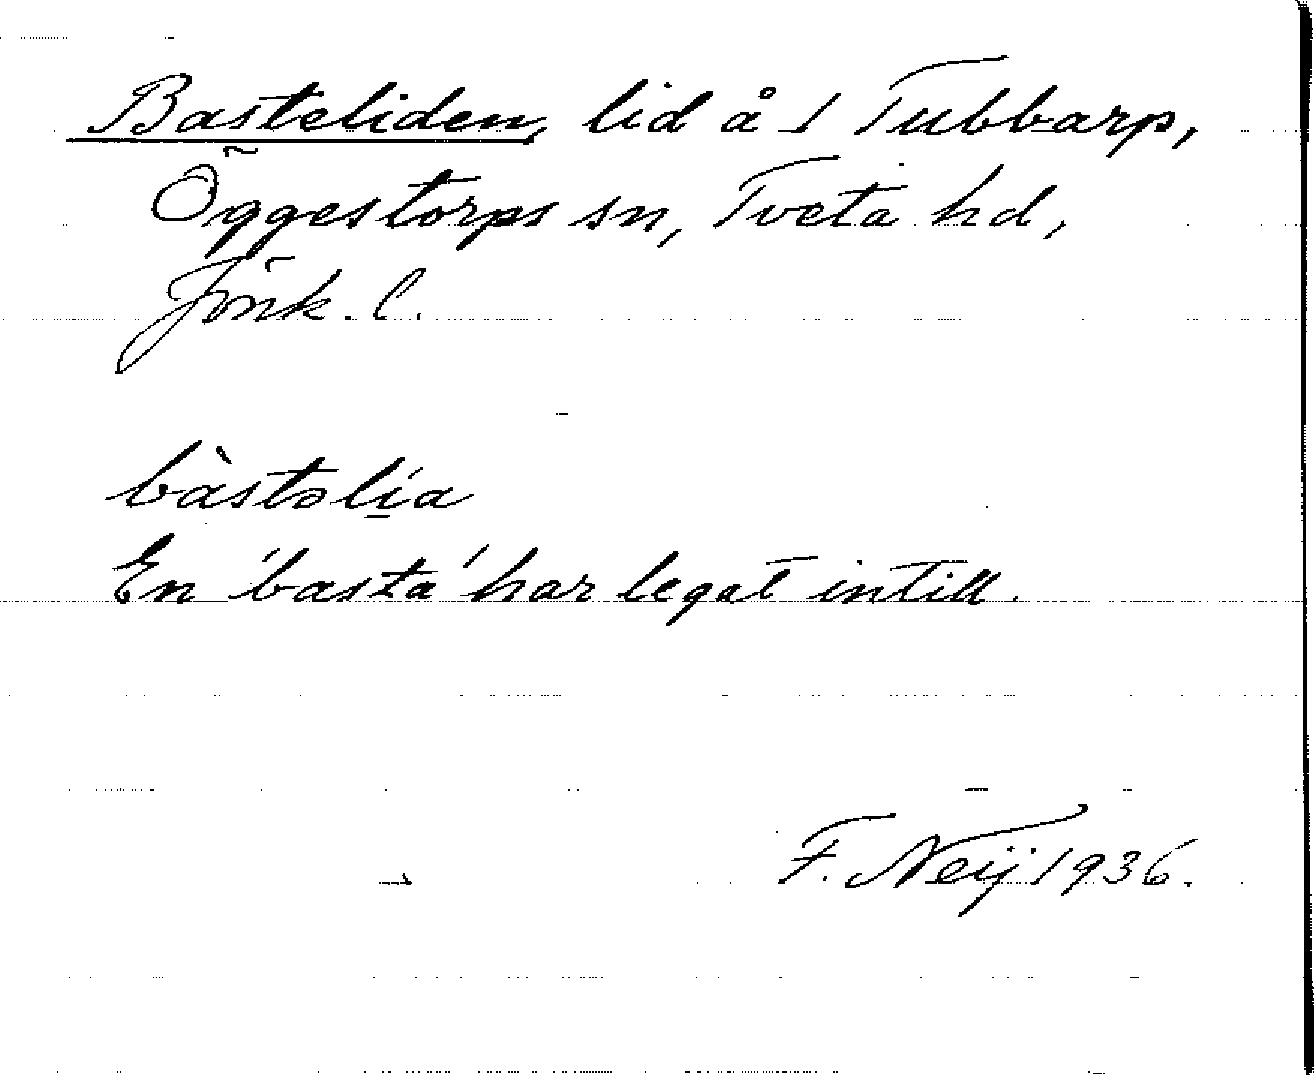 Basteliden, lid å 1 Tubbarp,
Öggestorps sn, Tveta hd,
Jönk. l.
bàstəli̲a
En 'basta' har legat intill.
F. Neij 1936.